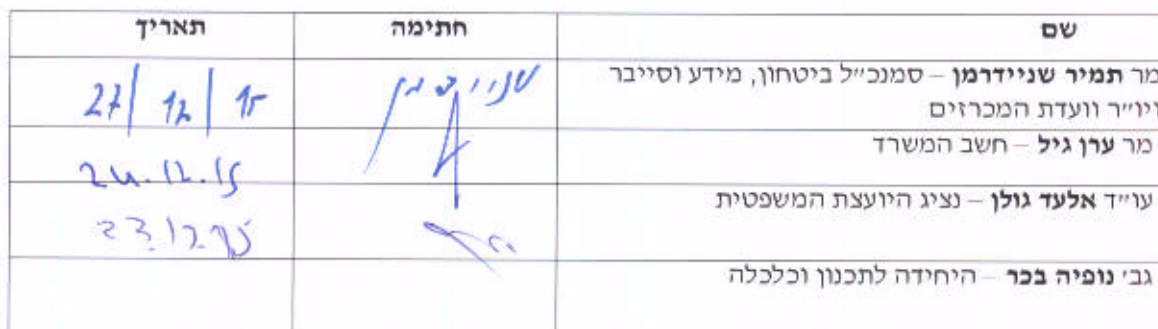 שם חתימה תאריך
מר תמיר שניידרמן – סמנכ״ל ביטחון, מידע וסייבר
ויו״ר וועדת המכרזים
27/12/15
מר ערן גיל – חשב המשרד
24.12.15
עו״ד אלעד גולן – נציג היועצת המשפטית
גב׳ נופיה בכר – היחידה לתכנון וכלכלה